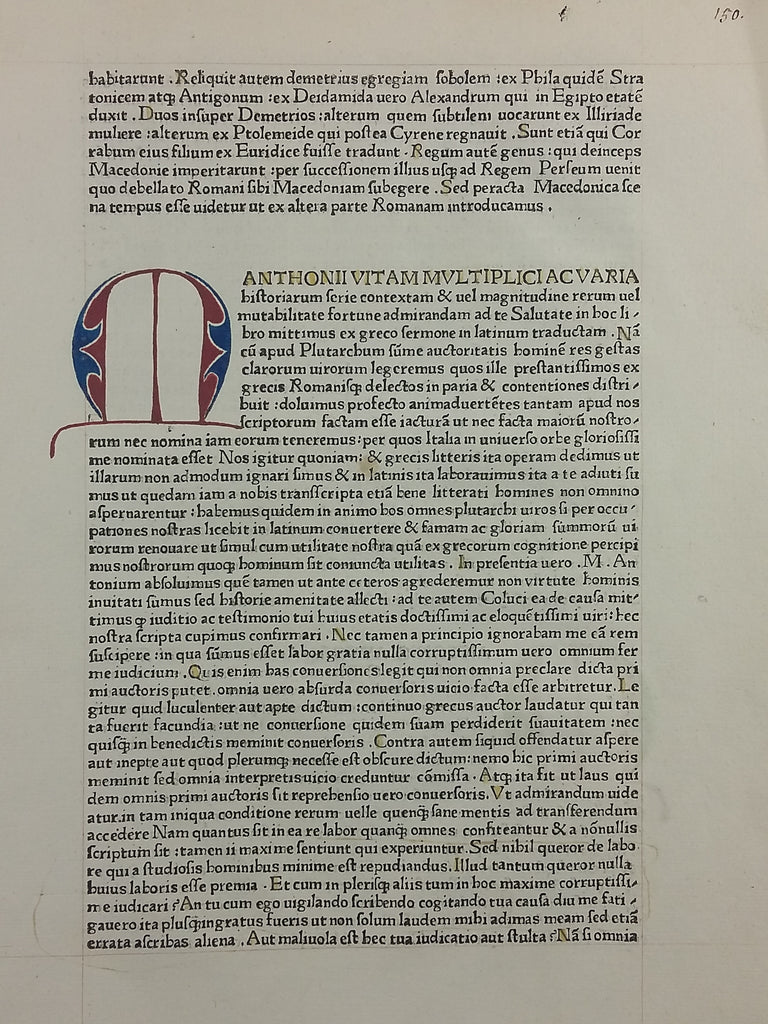 150.
habitarunt . Reliquit autem demetrius egregiam sobolem :ex Phila quidē Stra
tonicem atq; Antigonum :ex Deidamida uero Alexandrum qui in Egipto etatē
duxit . Duos insuper Demetrios :alterum quem subtilem uocarunt ex Illiriade
muliere :alterum ex Ptolemeide qui postea Cyrene regnauit . Sunt etiā qui Cor
rabum eius filium ex Euridice fuisse tradunt . Regum autē genus : qui deinceps
Macedonie imperitarunt :per successionem illius usq; ad Regem Perseum uenit
quo debellato Romani sibi Macedoniam subegere . Sed peracta Macedonica sce
na tempus esse uidetur ut ex altera parte Romanam introducamus .
M ANTHONII VITAM MVLTIPLICI AC VARIA
historiarum serie contextam & uel magnitudine rerum uel
mutabilitate fortune admirandam ad te Salutate in hoc li-
bro mittimus ex greco sermone in latinum traductam . Nā
cū apud Plutarchum sūme auctoritatis hominē res gestas
clarorum uirorum legeremus quos ille prestantissimos ex
grecis Romanisq; delectos in paria & contentiones distri-
buit : doluimus profecto animaduertētes tantam apud nos
scriptorum factam esse iacturā ut nec facta maiorū nostro-
rum nec nomina iam eorum teneremus: per quos Italia in uniuerso orbe gloriosissi
me nominata esset Nos igitur quoniam: & grecis litteris ita operam dedimus ut
illarum non admodum ignari simus & in latinis ita laborauimus ita a te adiuti su
mus ut quedam iam a nobis transscripta etiā bene litterati homines non omnino
aspernarentur : habemus quidem in animo hos omnes plutarchi uiros si per occu-
pationes nostras licebit in latinum conuertere & famam ac gloriam summorū ui
rorum renouare ut simul cum utilitate nostra quā ex grecorum cognitione percipi
mus nostrorum quoq; hominum sit coniuncta utilitas . In presentia uero .M. An
tonium absoluimus quē tamen ut ante ceteros agrederemur non virtute hominis
inuitati sumus sed historie amenitate allecti : ad te autem Coluci ea de causa mit-
timus q; iuditio ac testimonio tui huius etatis doctissimi ac eloquētissimi uiri: hec
nostra scripta cupimus confirmari . Nec tamen a principio ignorabam me eā rem
suscipere :in qua sūmus esset labor gratia nulla corruptissimum uero omnium fer
me iudicium . Quis enim has conuersiones legit qui non omnia preclare dicta pri
mi auctoris putet . omnia uero absurda conuersoris uicio facta esse arbitretur. Le
gitur quid luculenter aut apte dictum :continuo grecus auctor laudatur qui tan
ta fuerit facundia :ut ne conuersione quidem suam perdiderit suauitatem :nec
quisq; in benedictis meminit conuersoris . Contra autem siquid offendatur aspere
aut inepte aut quod plerumq; necesse est obscure dictum: nemo hic primi auctoris
meminit sed omnia interpretis uicio creduntur cōmissa . Atq; ita fit ut laus qui
dem omnis primi auctoris sit reprehensio uero conuersoris. Vt admirandum uide
atur.in tam iniqua conditione rerum uelle quenq; sane mentis ad transferendum
accedere Nam quantus sit in ea re labor quanq; omnes confiteantur & a nōnullis
scriptum sit : tamen ii maxime sentiunt qui experiuntur. Sed nihil queror de labo
re qui a studiosis hominibus minime est repudiandus. Illud tantum queror nulla
huius laboris esse premia . Et cum in plerisq; aliis tum in hoc maxime corruptissi-
me iudicari ? An tu cum ego uigilando scribendo cogitando tua causa diu me fati-
gauero ita plusq; ingratus fueris ut non solum laudem mihi adimas meam sed etiā
errata ascribas aliena . Aut maliuola est hec tua iudicatio aut stulta ? Nā si omnia